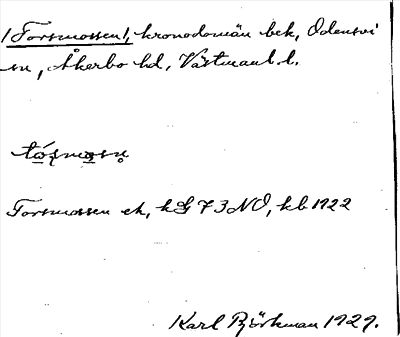 /Torsmossen/, kronodomän bek, Odensvi
sn, Åkerbo hd, Västmanl. l.
Torsmossen ek, kG 73 NO, kb 1922
Karl Björkman 1929.